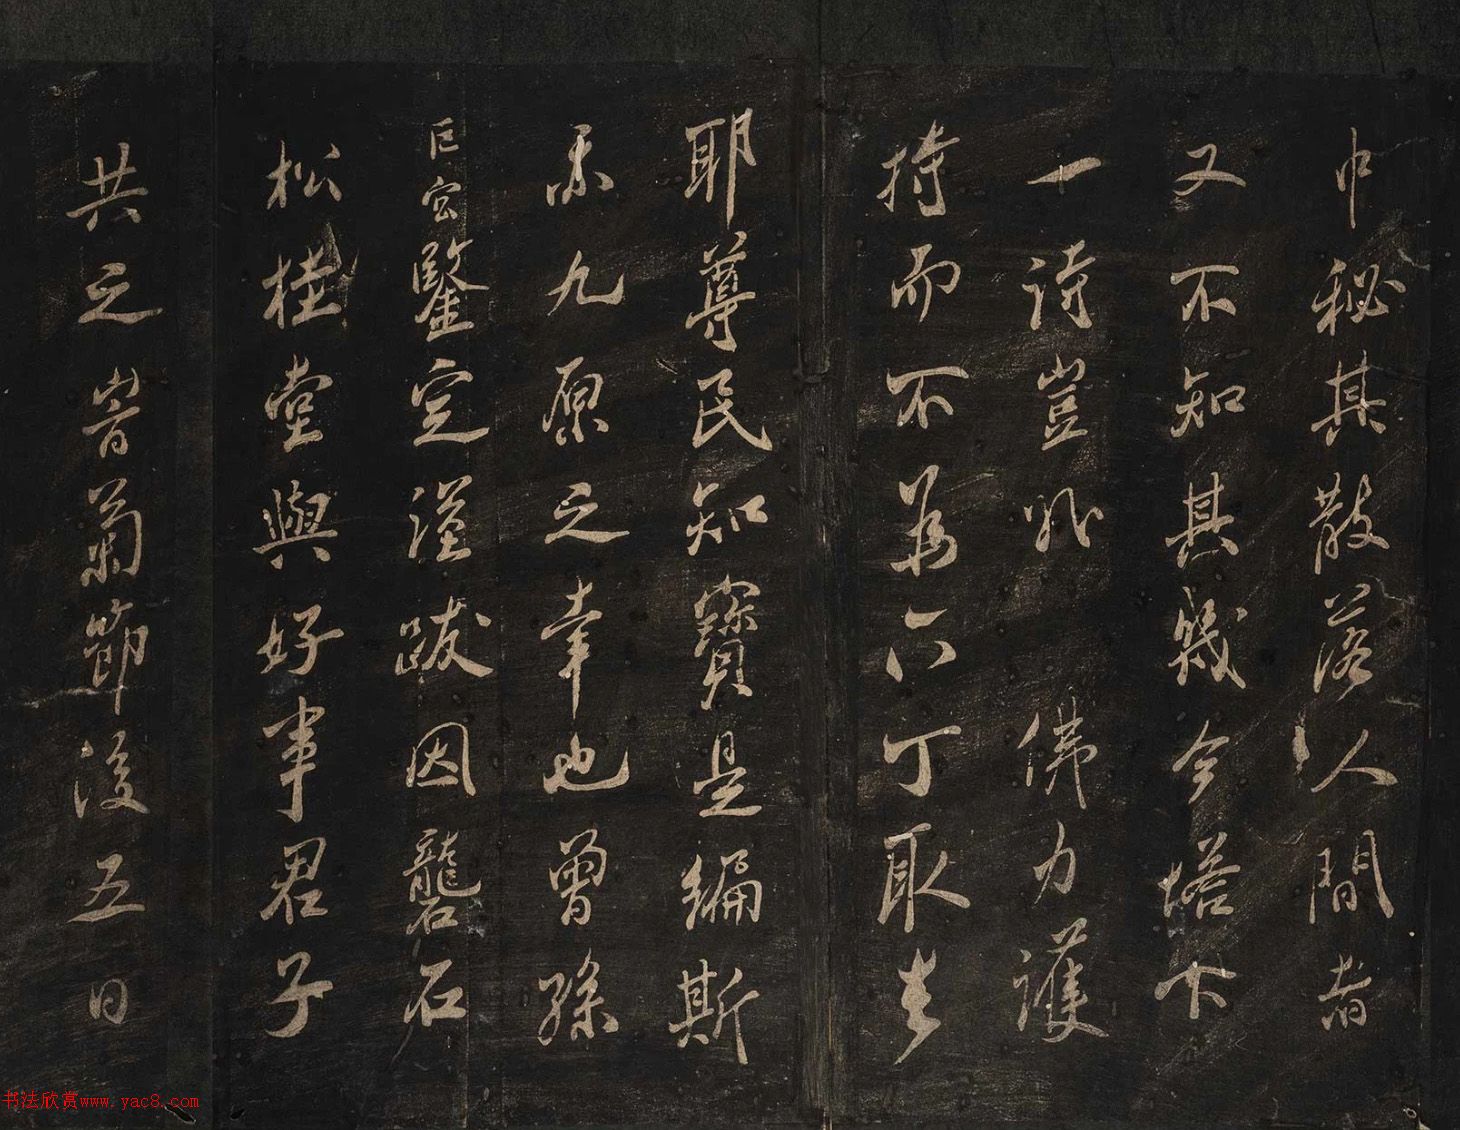 巾秘其散落人間者
又不知其幾今塔下
一詩豈非佛力護
持而不爲六丁取去
耶尊民知寶是編斯
亦九原之幸也曾孫
巨容鑒定謹跋因礱石
松桂堂與好事君子
共之時菊節後五日
书法欣赏www.yac8.com